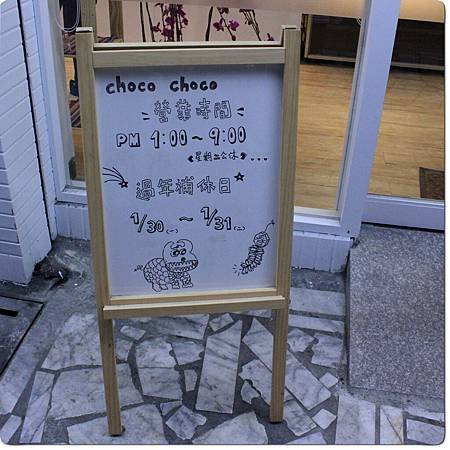 choco choco
營業時間
PM 1:00~9:00
《星期二公休》...
過年補休日
1/30(一) ~ 1/31(二)